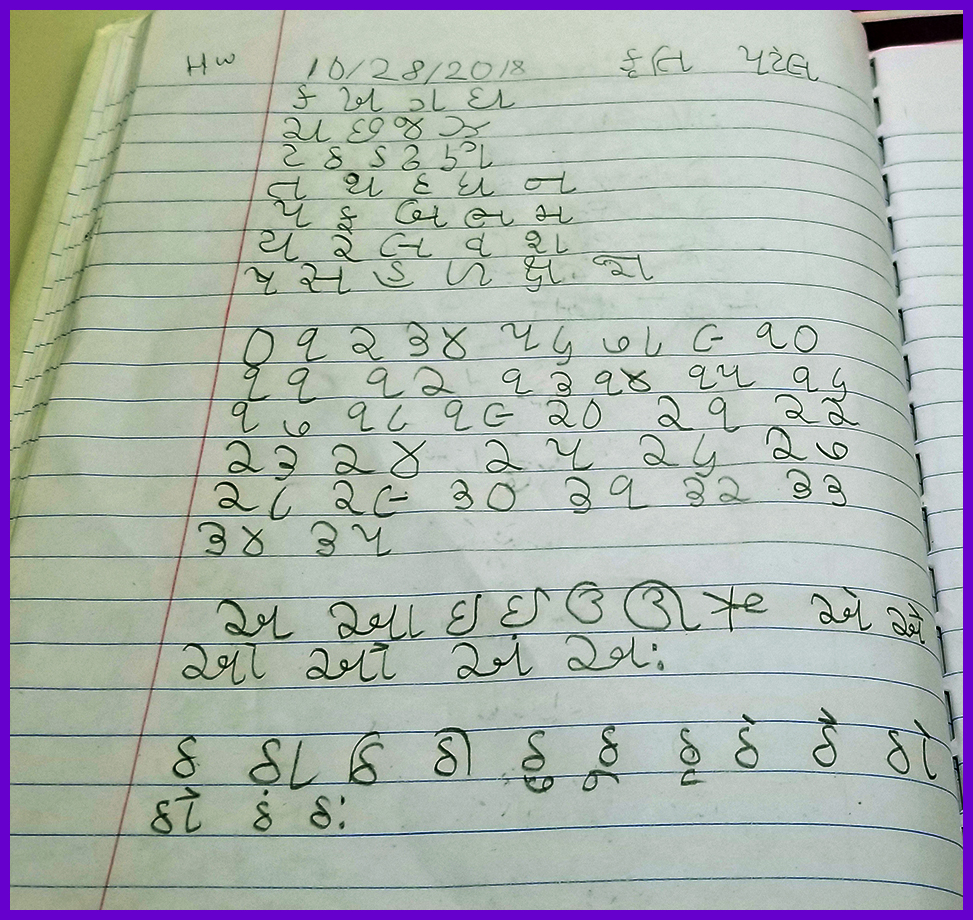 HW 10/28/2018 કૃતિ પટેલ
ક ખ ગ ઘ
ચ છ જ ઝ
ટ ઠ ડ ઢ ણ
ત થ દ ધ ન
પ ફ બ ભ મ
ય ર લ વ શ
ષ સ હ ળ ક્ષ જ્ઞ
૦ ૧ ૨ ૩ ૪ ૫ ૬ ૭ ૮ ૯ ૧૦
૧૧ ૧૨ ૧૩ ૧૪ ૧૫ ૧૬
૧૭ ૧૮ ૧૯ ૨૦ ૨૧ ૨૨
૨૩ ૨૪ ૨૫ ૨૬ ૨૭
૨૮ ૨૯ ૩૦ ૩૧ ૩૨ ૩૩
૩૪ ૩૫
અ આ ઇ ઈ ઉ ઊ ઋ એ ઐ
ઓ ઔ અં અઃ
ઠ ઠા ઠિ ઠી ઠુ ઠૂ ઠૃ ઠે ઠૈ ઠો
ઠૌ ઠં ઠઃ